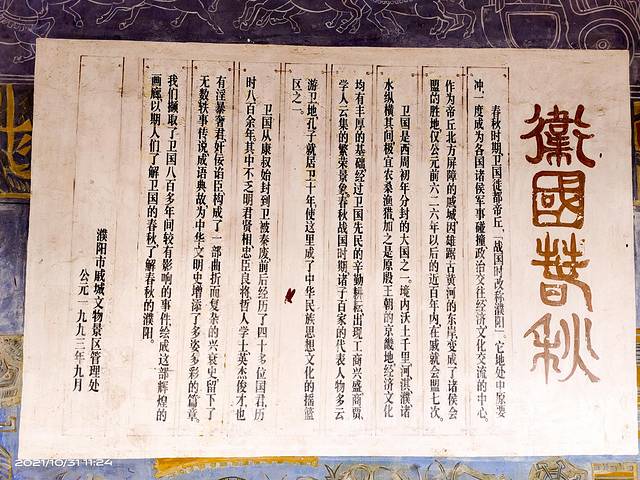 衞國春秋
春秋时期卫国徙都帝丘，（战国时改称濮阳）。它地处中原要
冲，一度成为各国诸侯军事碰撞、政治交往、经济文化交流的中心。
作为帝丘北方屏障的戚城，因雄踞古黄河的东岸，变成了诸侯会
盟的胜地，仅公元前六二六年以后的近百年内，在戚就会盟七次。
卫国是西周初年分封的大国之一。境内沃土千里，河、淇、濮诸
水纵横其间，极宜农桑渔猎，加之是原殷王朝的京畿地，经济文化
均有丰厚的基础，经过卫国先民的辛勤耕耘，出现工商兴盛，商贾、
学人云集的繁荣景象，春秋战国时期诸子百家的代表人物多云
游卫地，孔子就居卫十年，使这里成了中华民族思想文化的摇篮
区之一。
卫国从康叔始封到卫被秦废，前后经历了四十多位国君，历
时八百余年，其中不乏明君贤相、忠臣良将、哲人学士、英杰俊才，也
有淫暴奢君、奸佞谄臣，构成了一部曲折而复杂的兴衰史，留下了
无数轶事传说、成语典故，为中华文明史增添了多姿多彩的篇章。
我们撷取了卫国八百多年间较有影响的事件，绘成这部辉煌的
画廊，以期人们了解卫国的春秋，了解春秋的濮阳。
濮阳市戚城文物景区管理处
公元一九九三年九月
2021/10/31 11:24